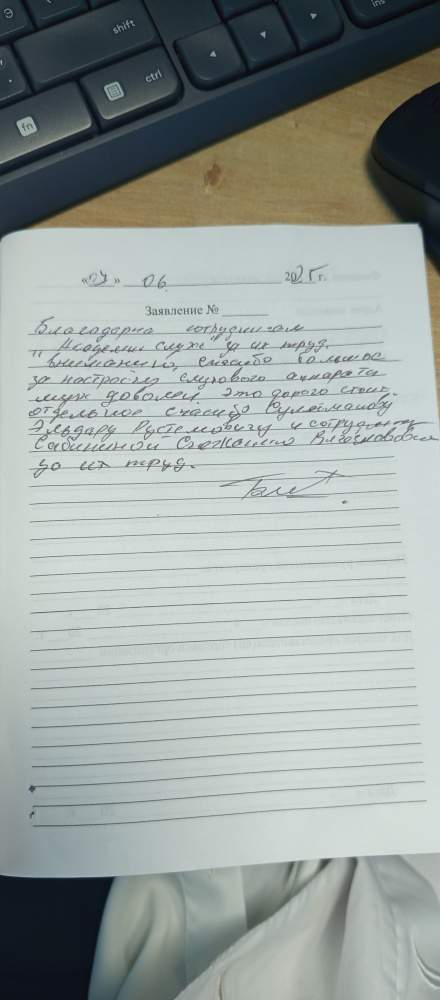 shift
ctrl
fn
ins
« » 06 2025 г.
Заявление №
Благодарна сотрудникам
"Академии слуха" за их труд,
внимание, спасибо большое
за настройку слухового аппарата
муж доволен, это дорого стоит.
отдельное спасибо Сулейманову
Эльдару Рустемовичу и сотруднику
Сабининой Снежанне Вячеславовне
за их труд.